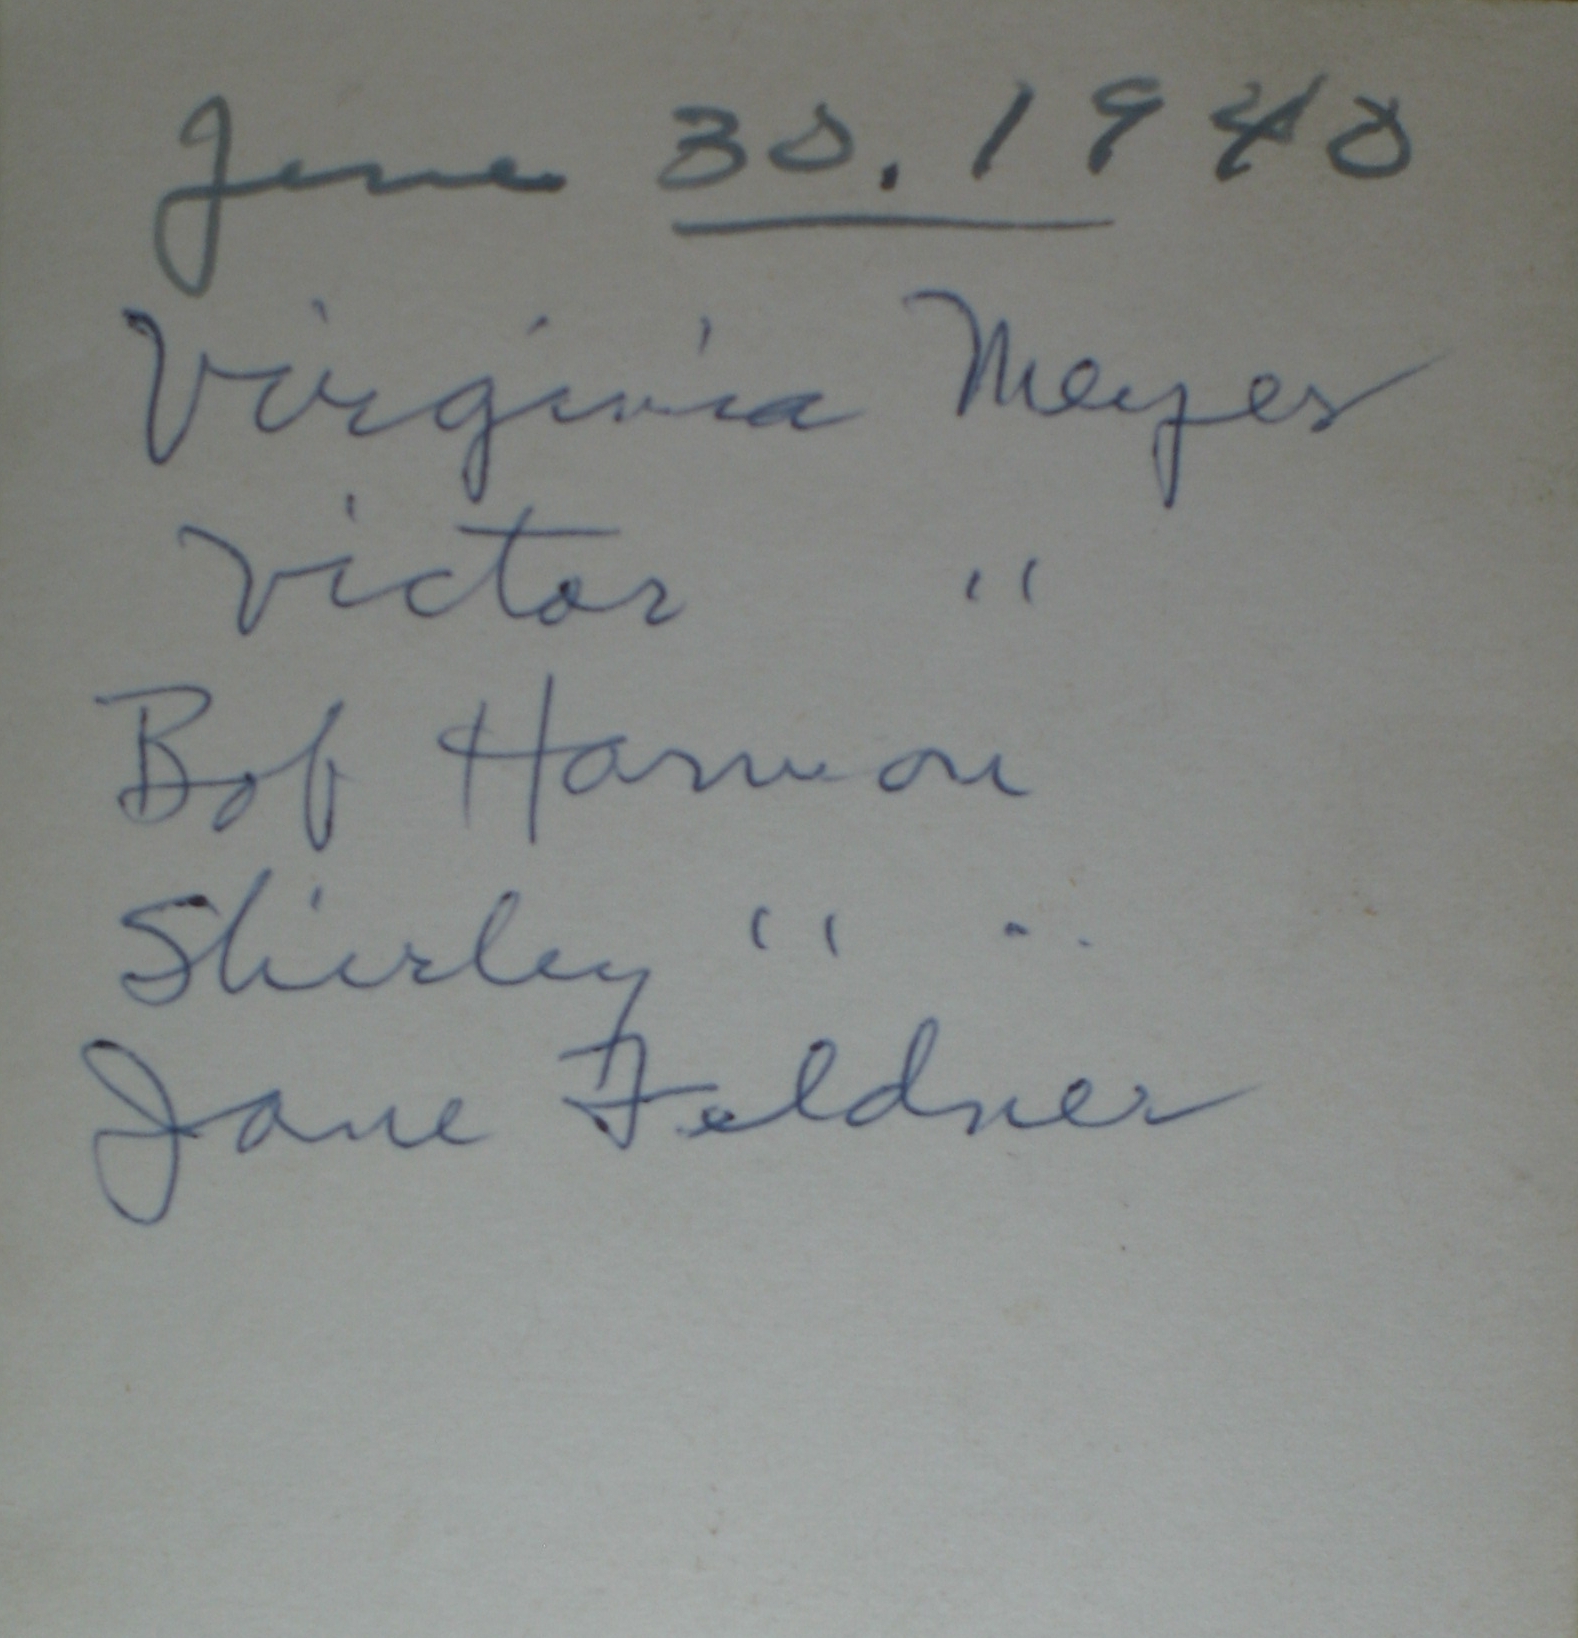 June 30. 1940
Virginia Meyer
Victor "
Bob Harmon
Shirley " "
Jane Feldner